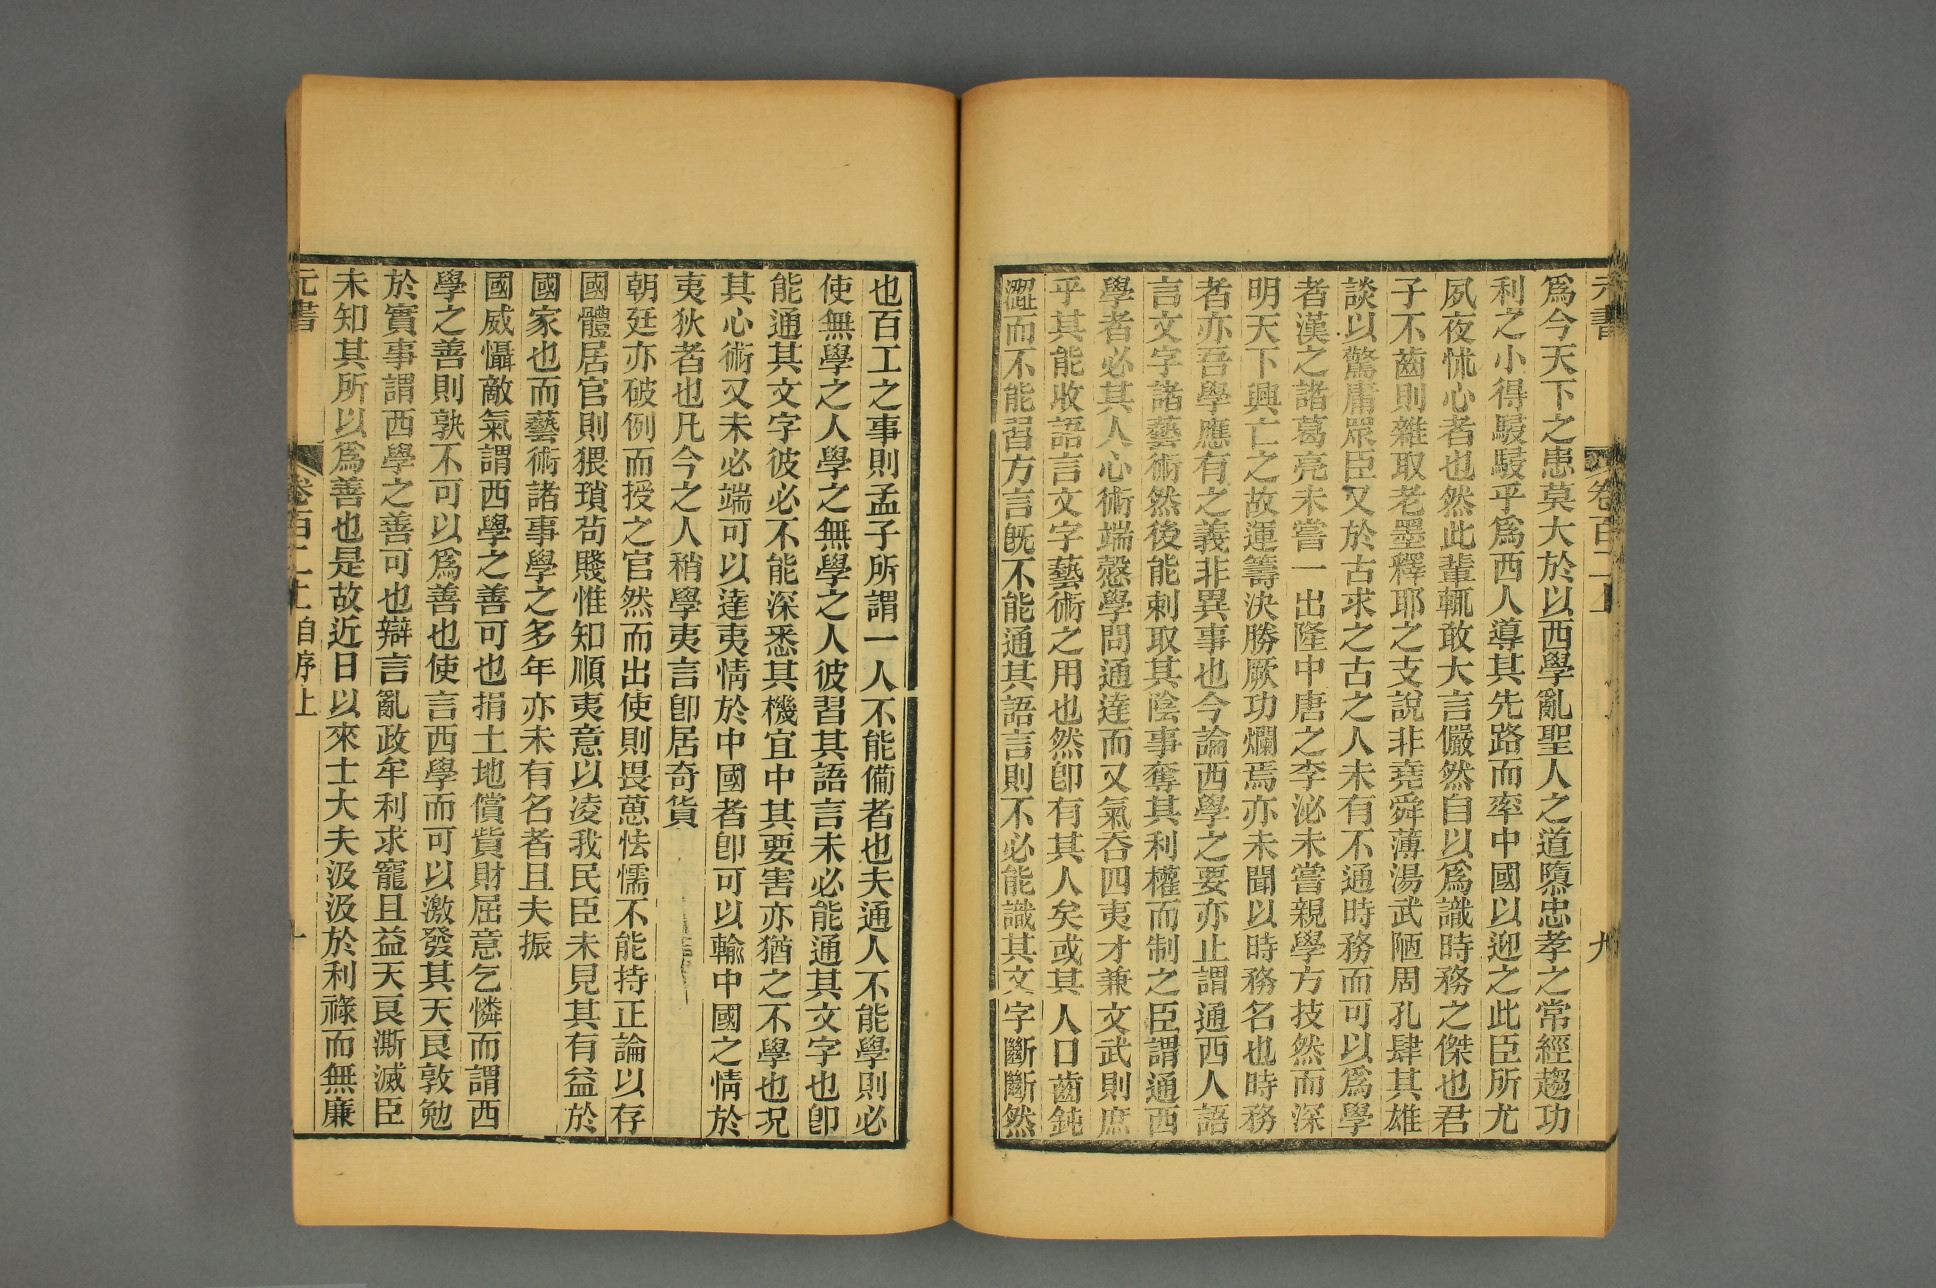 元書
卷百二上
九
爲今天下之患莫大於以西學亂聖人之道隳忠孝之常經趨功
利之小得駸駸乎爲西人導其先路而率中國以迎之此臣所尤
夙夜怵心者也然此輩輒敢大言儼然自以爲識時務之傑也君
子不齒則雜取老墨釋耶之支說非堯舜薄湯武陋周孔肆其雄
談以驚庸眾臣又於古求之古之人未有不通時務而可以爲學
者漢之諸葛亮未嘗一出隆中唐之李泌未嘗親學方技然而深
明天下興亡之故運籌決勝厥功爛焉亦未聞以時務名也時務
者亦吾學應有之義非異事也今論西學之要亦止謂通西人語
言文字諸藝術然後能刺取其陰事奪其利權而制之臣謂通西
學者必其人心術端慤學問通達而又氣吞四夷才兼文武則庶
乎其能收語言文字藝術之用也然卽有其人矣或其人口齒鈍
澀而不能習方言旣不能通其語言則不必能識其文字斷斷然
也百工之事則孟子所謂一人不能備者也夫通人不能學則必
使無學之人學之無學之人彼習其語言未必能通其文字也卽
能通其文字彼必不能深悉其機宜中其要害亦猶之不學也况
其心術又未必端可以達夷情於中國者卽可以輸中國之情於
夷狄者也凡今之人稍學夷言卽居奇貨
朝廷亦破例而授之官然而出使則畏葸怯懦不能持正論以存
國體居官則猥瑣茍賤惟知順夷意以凌我民臣未見其有益於
國家也而藝術諸事學之多年亦未有名者且夫振
國威懾敵氣謂西學之善可也捐土地償貲財屈意乞憐而謂西
學之善則孰不可以爲善也使言西學而可以激發其天良敦勉
於實事謂西學之善可也辯言亂政牟利求寵且益天良澌滅臣
未知其所以爲善也是故近日以來士大夫汲汲於利祿而無廉
元書
卷百二上自序上
十